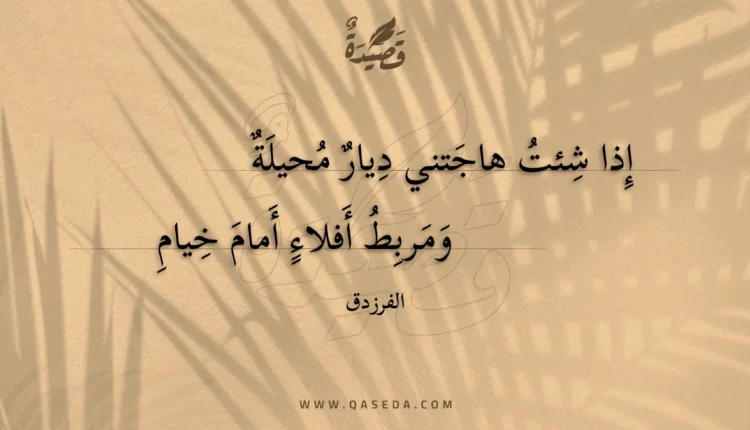 قَصِيْدَةٌ
إِذا شِئتُ هاجَتني دِيارٌ مُحيلَةٌ
وَمَربِطُ أَفلاءٍ أَمامَ خِيامِ
الفرزدق
WWW.QASEDA.COM